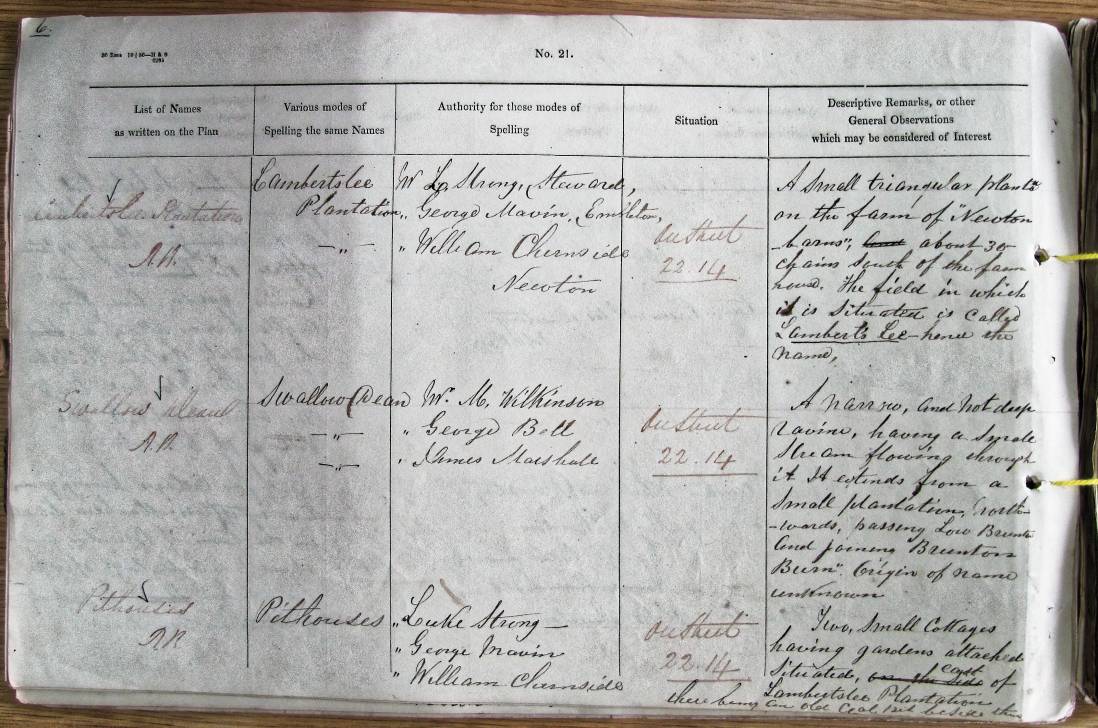 6.
No. 21.
List of Names
as written on the Plan
Various modes of
Spelling the same Names
Authority for those modes of
Spelling
Situation
Descriptive Remarks, or other
General Observations
which may be considered of Interest
Plantation
Lambertslee
Plantation
—„—
W L. Strong, Steward,
„ George Mavin, Embleton,
„ William Chernside
Newton
On Sheet
22.14
A small triangular plantn
on the farm of "Newton
barns", about 30
chains South of the farm
house. The field in which
it is Situated is called
Lambert's Lee hence the
name,
Swallow Dean
Swallow Dean
—„—
—„—
Wm. M. Wilkinson
„ George Bell
„ James Marshall
On Sheet
22.14
A narrow, and not deep
ravine, having a Small
Stream flowing through
it It extends from a
Small plantation, north-
-wards, passing Low Brunton
and joining Brunton
Burn". Origin of name
unknown
Pithouses
Pithouses
„ Luke Strong
„ George Mavin
„ William Chernside
On Sheet
22.14
Two, Small Cottages
having gardens attached
Situated, on the side east of
Lambertslee Plantation
there being an old Coal Pit beside them